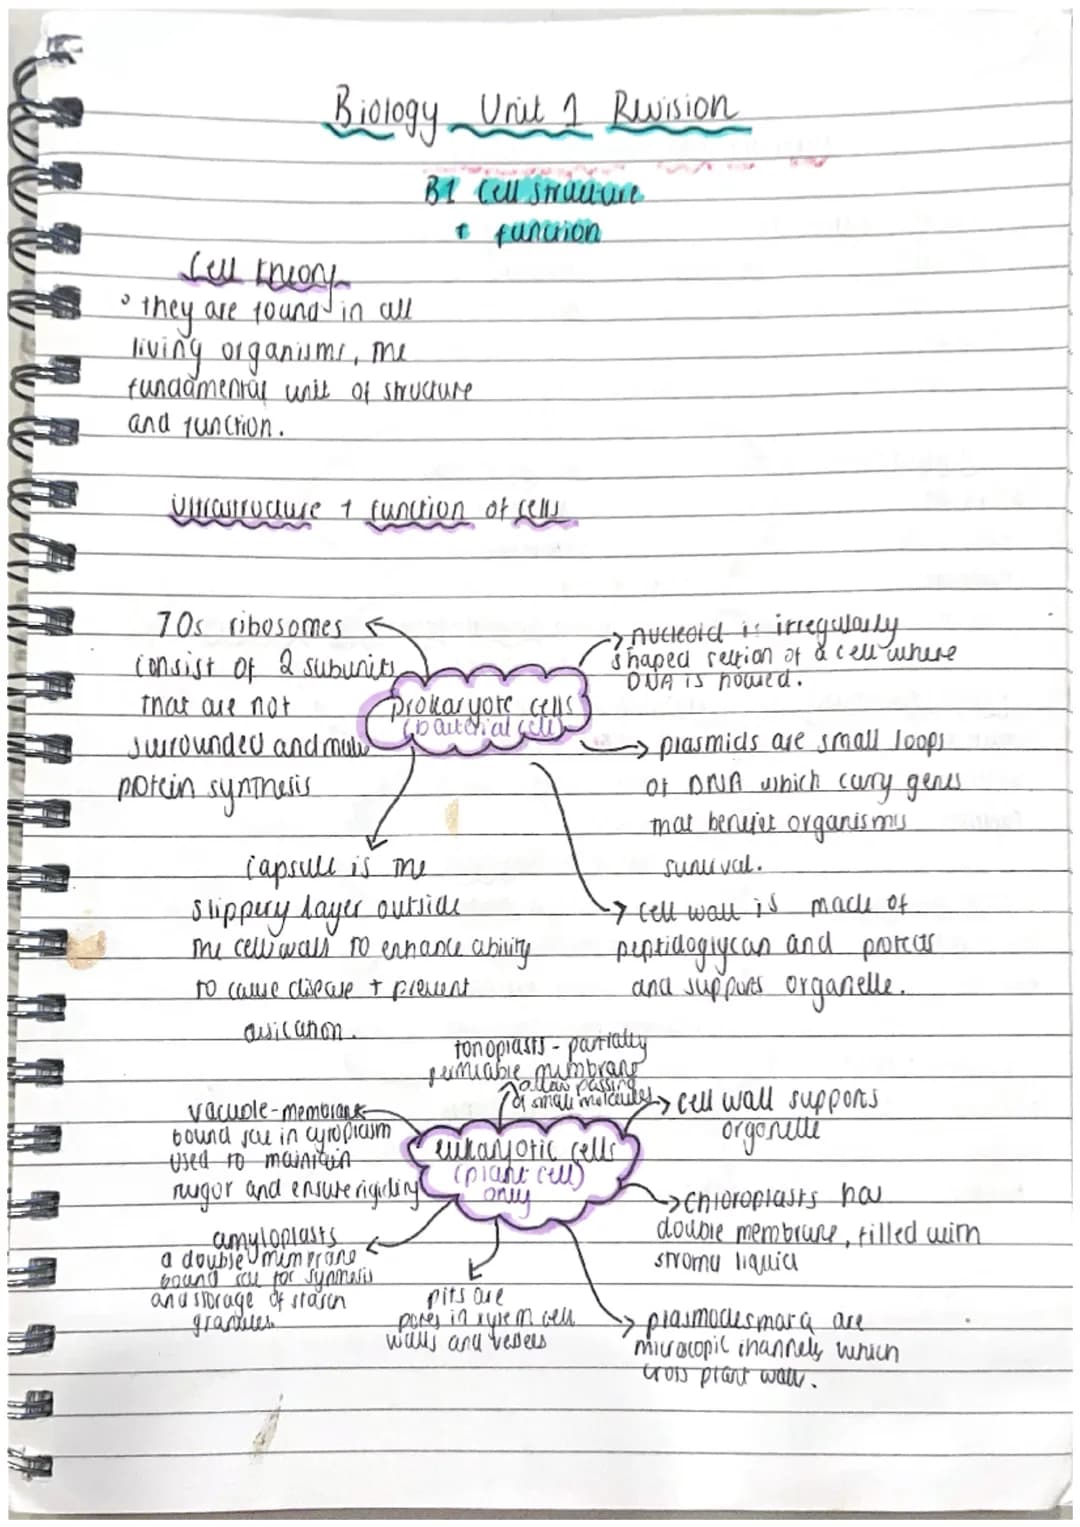 Biology Unit 1 Revision
B1 Cell structure
+ function
Cell theory
° they are found in all
living organisms, the
fundamental unit of structure
and function.
Ultrastructure + function of cells
70s ribosomes
consist of 2 subunits
that are not
surrounded and make
protein synthesis
prokaryote cells
(bacterial cell)
nucleoid is irregularly
shaped section of a cell where
DNA is housed.
plasmids are small loops
of DNA which carry genes
that benefit organisms
survival.
capsule is the
slippery layer outside
the cell wall to enhance ability
to cause disease + prevent
cell wall is made of
peptidoglycan and protects
and supports organelle.
tonoplasts - partially
permiable membrane
allow passing
of small molecules
vacuole - membrane
bound sac in cytoplasm
used to maintain
turgor and ensure rigidity
eukaryotic cells
(plant cell)
only
cell wall supports
organelle
chloroplasts has
double membrane, filled with
stroma liquid
amyloplasts
a double membrane
bound sac for synthesis
and storage of starch
granules.
pits are
pores in xylem cell
walls and vessels
plasmodesmara are
microscopic channels which
cross plant wall.